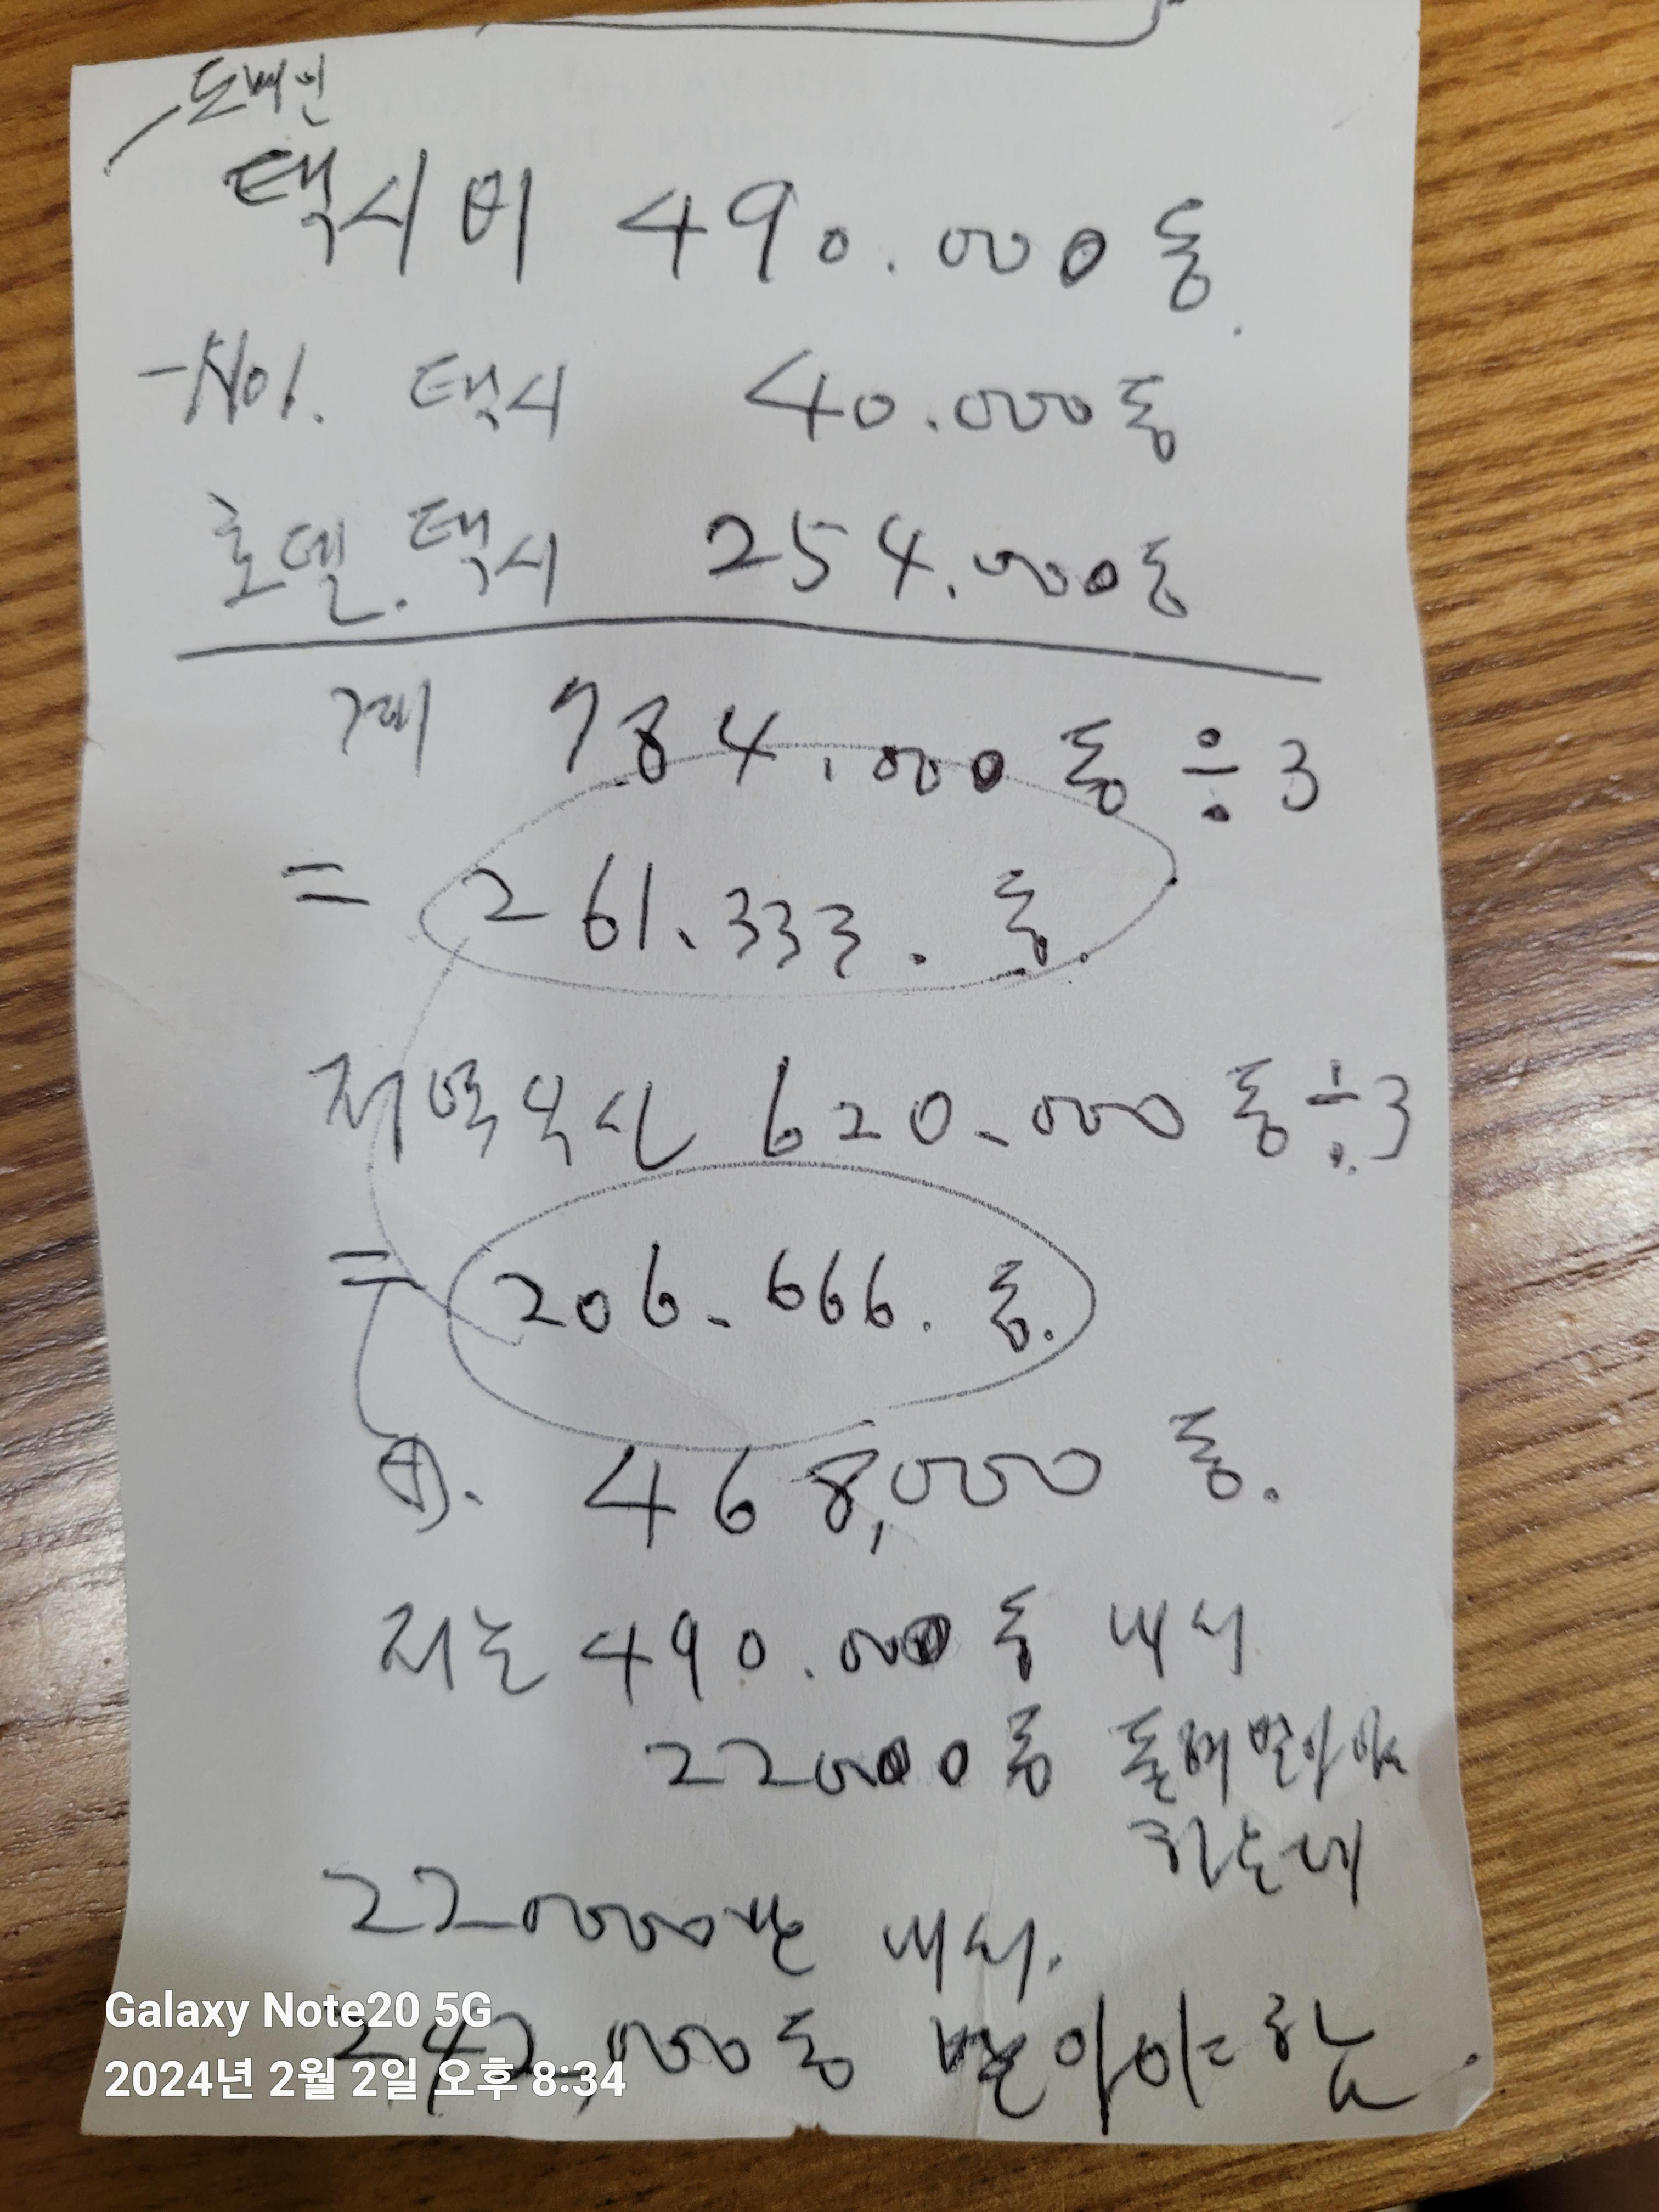 택시비 490.000동.
택시 40.000동
호텔.택시 254.000동
계 784.000동÷3
= 261.333.동.
저녁식사 620.000동÷3
= 206.666.동.
468,000동.
저는 490.000동 내서
22000동 돌려받아야
하는데
220000만 내서.
242,000동 받아야 함.
Galaxy Note20 5G
2024년 2월 2일 오후 8:34